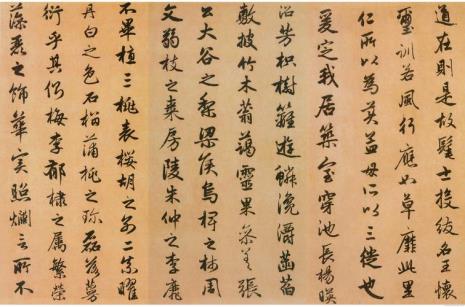 道在則是故髦士投紱名王懷
璽訓若風行應如草靡此里
仁所以為美孟母所以三徙也
爰定我居築室穿池長楊暎
沼芳枳樹籬遊鱗瀺灂菡萏
敷披竹木蓊藹靈果參差張
公大谷之梨梁侯烏椑之柿周
文弱枝之棗房陵朱仲之李靡
不畢植三桃表櫻胡之別二柰曜
丹白之色石榴蒲桃之珍磊落蔓
衍乎其側梅李郁棣之屬繁榮
藻麗之飾華實照爛言所不